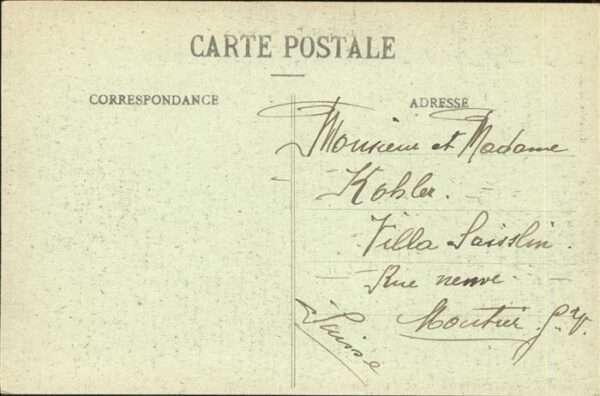 CARTE POSTALE
CORRESPONDANCE
ADRESSE
Monsieur et Madame
Kohler.
Villa Saisslin.
Rue neuve.
Moutier
Suisse